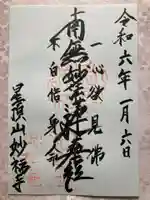 令和六年一月六日
一心欲見佛
南無妙法蓮華経
不自惜身命
山妙福寺